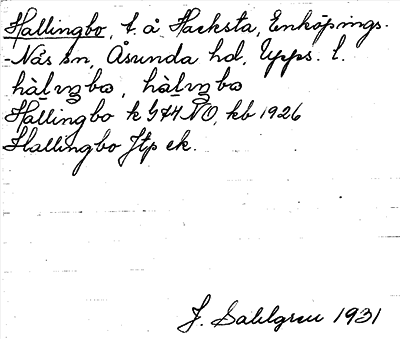 Hallingbo, t. å Hacksta, Enköpings.
-Näs sn, Åsunda hd, Upps. l.
Hallingbo k G74 NO, kb 1926
Hallingbo Jtp ek.
J. Sahlgren 1931